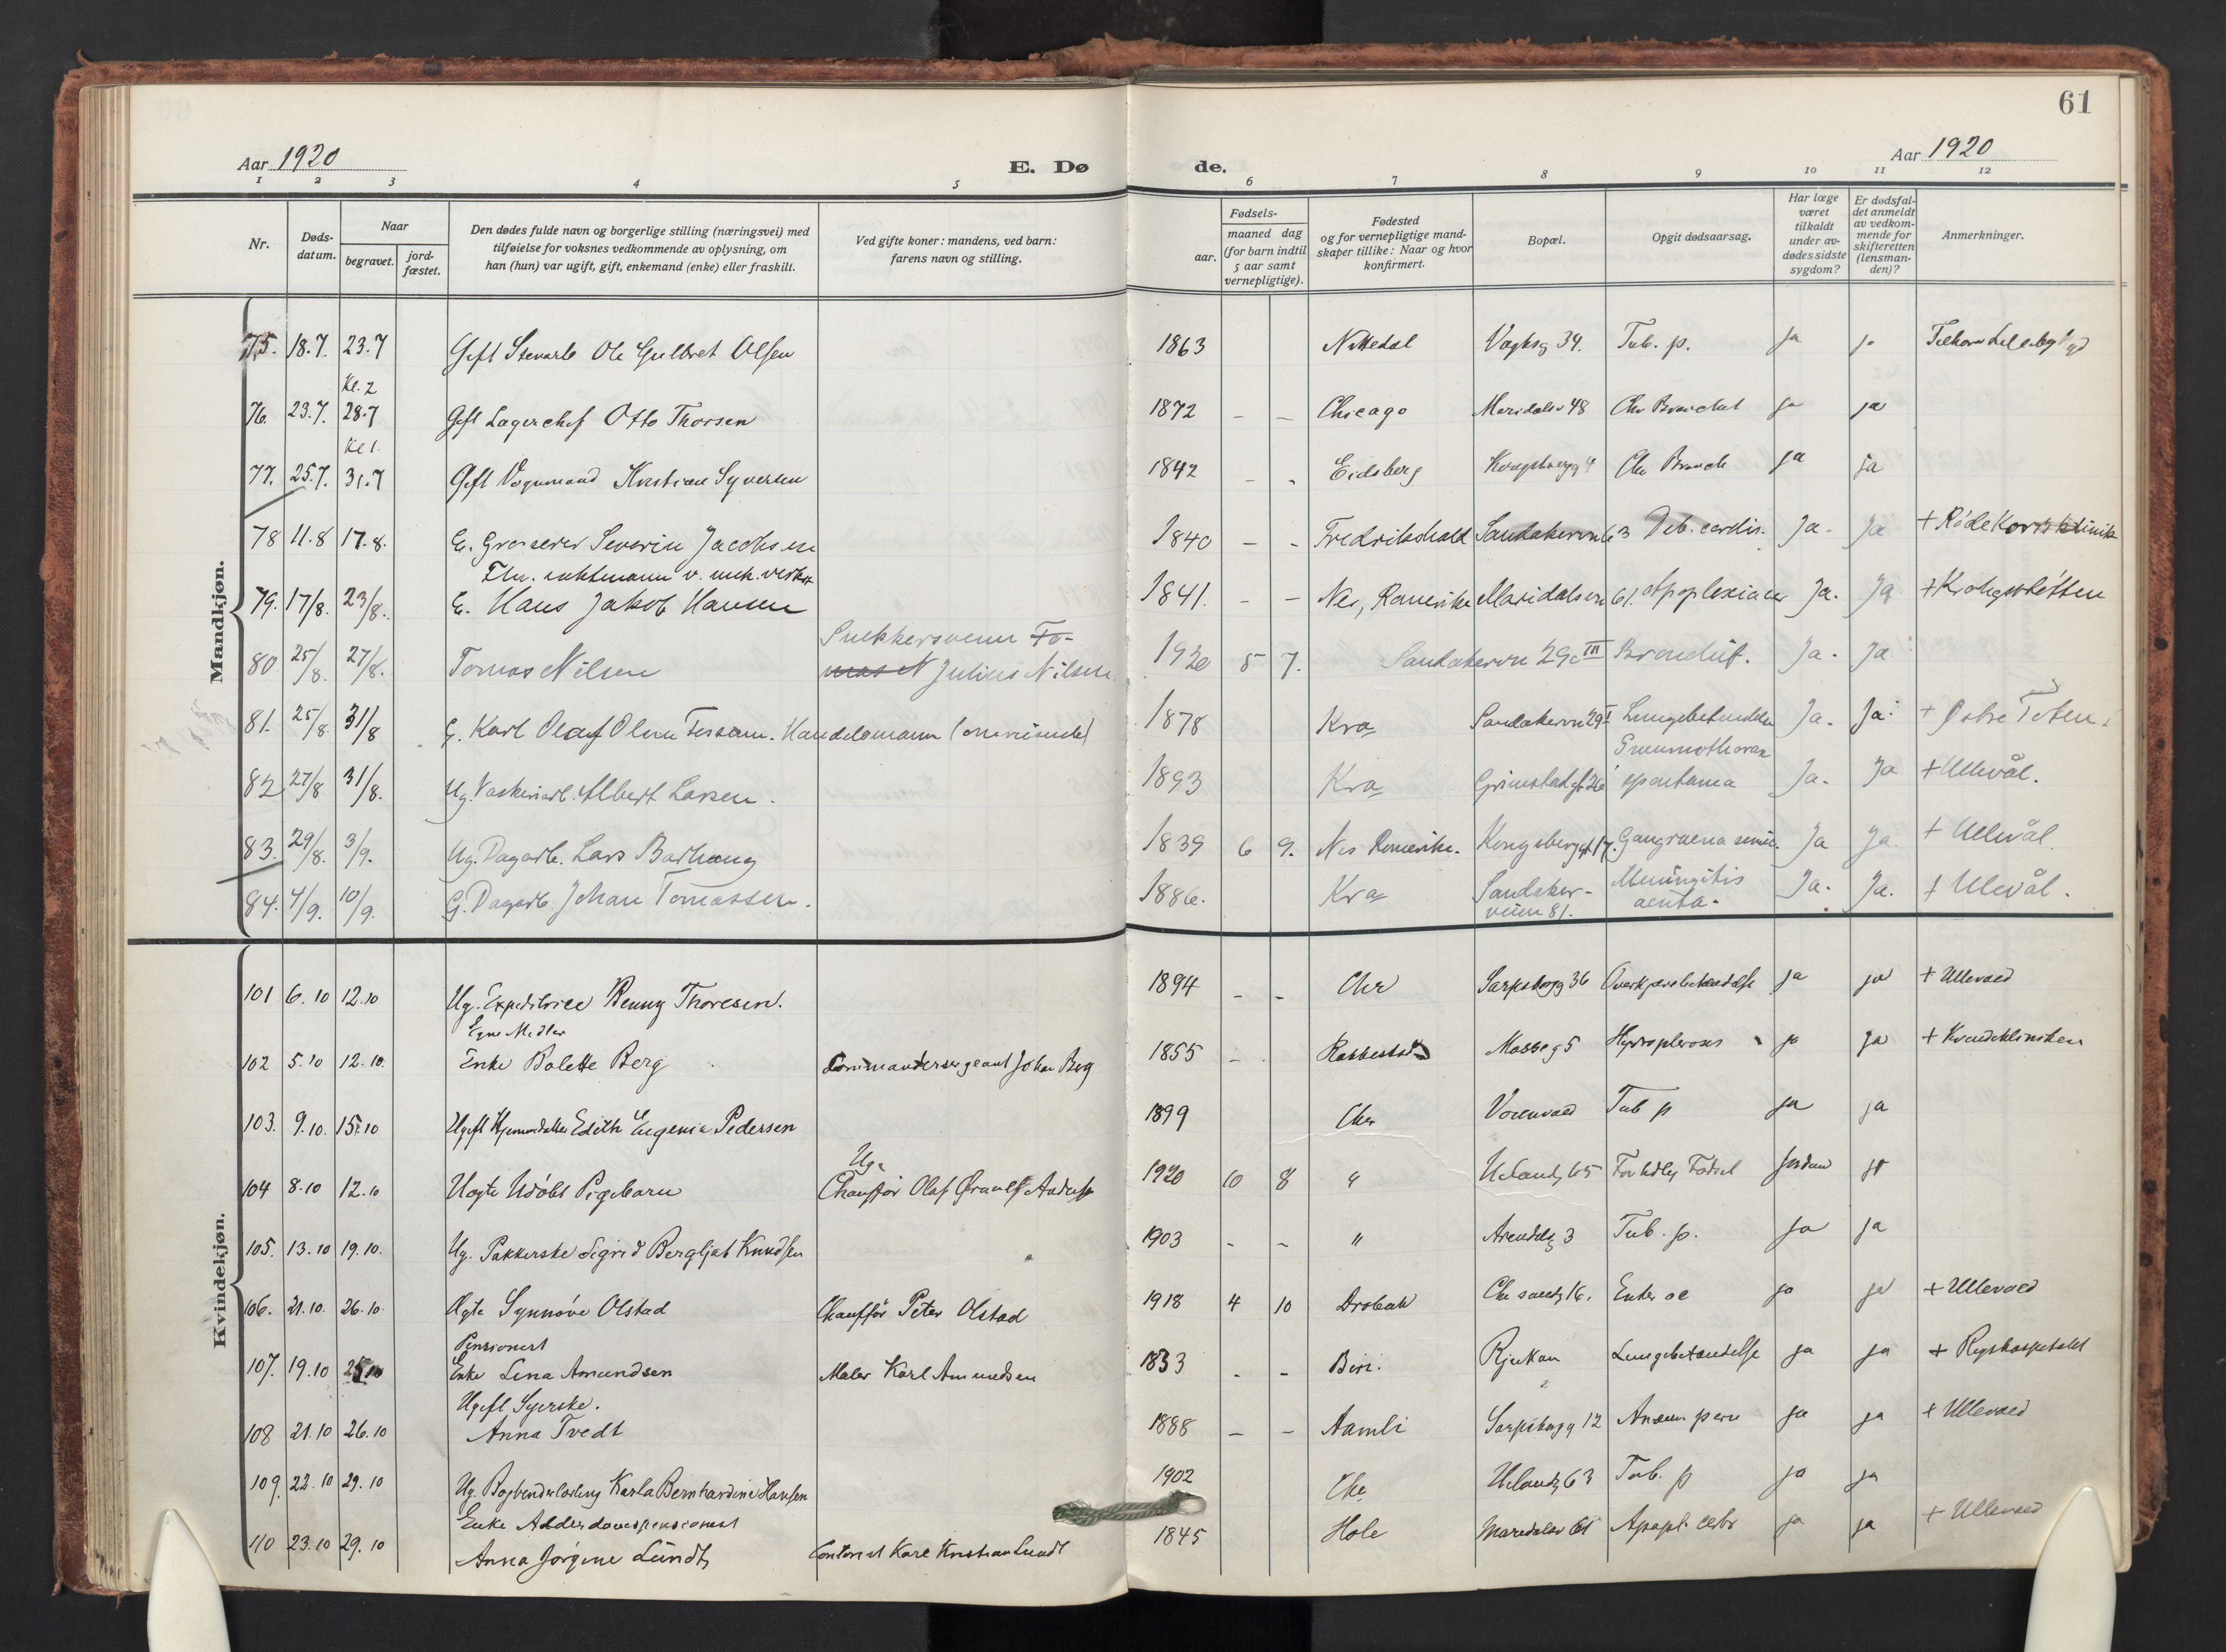 61
Aar 1920
E. Dø
de.
Aar 1920
1 2 3 4 5 6 7 8 9 10 11 12
Nr.
Døds-
datum.
Naar
begravet.
jord-
fæstet.
Den dødes fulde navn og borgerlige stilling (næringsvei) med
tilføielse for voksnes vedkommende av oplysning, om
han (hun) var ugift, gift, enkemand (enke) eller fraskilt.
Ved gifte koner: mandens, ved barn:
farens navn og stilling.
Fødsels-
aar.
maaned dag
(for barn indtil
5 aar samt
vernepligtige).
Fødested
og for vernepligtige mand-
skaper tillike: Naar og hvor
konfirmert.
Bopæl.
Opgit dødsaarsag.
Har læge
været
tilkaldt
under av-
dødes sidste
sygdom?
Er dødsfal-
det anmeldt
av vedkom-
mende for
skifteretten
(lensman-
den)?
Anmerkninger.
Mandkjøn.
75. 18.7. 23.7 Gift Ole Gulbret Olsen 1863 Nittedal 34. Tub. p. ja ja
Kl. 2
76. 23.7. 28.7 Gift Lagerchef Otto Thorsen 1872 – – Chicago Maridalsv 48 ja ja
Kl 1.
77. 25.7. 31.7 Gift Vognmand Kristian Syversen 1842 – – Eidsberg ja ja
78 11.8 17.8. E. Grosserer Severin Jacobsen 1840 – – Fredrikshald Sandakervn 63 Deb. cordis. Ja. Ja + Røde Kors klinik
79. 17/8. 23/8. E. Hans Jakob Hansen 1841. – – Nes, Romerike Maridalsvn 61. Apoplexia Ja. Ja +
80 25/8. 27/8. Tomas Nilsen Snekkersvenn To-
mas N Julius Nilsen 1920 5 7. Sandakervn 29c III Bronchit. Ja. Ja
81. 25/8. 31/8 G. Karl Olaf Olsen . Handelsmann 1878 Kra Sandakervn 29 I Lungebetændelse Ja. Ja. + Østre Toten.
82 27/8 31/8. Ug. Albert Larsen. 1893 Kra Grimstadgt 26 Pneumothorax
spontanea Ja. Ja + Ullevål.
83. 29/8. 3/9. Ug. Dagarb. Lars 1839 6 9. Nes Romerike. Kongsberggt 17. Gangraena senil. Ja Ja. + Ullevål.
84. 4/9. 10/9. G. Dagarb. Johan Tomassen. 1886. Kra Sandaker-
veien 81. Meningitis
acuta. Ja. Ja. + Ullevål.
Kvindekjøn.
101 6.10 12.10 Ug. Expeditrice Benny Thoresen. 1894 – – Chr Sarpsborgg 36 ja ja + Ullevaal
Egne Midler
102 5.10 12.10. Enke Bolette Berg Commandersergeant Johan Berg 1855 – Rakkestad Mosseg 5 ja ja + Kvindeklinikken
103. 9.10. 15.10 Ugift Hjemmedatter Edith Eugenie Pedersen 1899 Chr Tub p ja ja
104 8.10 12.10 Uægte Udøbt Pigebarn Ug.
Chauffør Olaf 1920 10 8 " Uelandsg 65 Fortidlig Fødsel Jordmor ja
105. 13.10 19.10. Ug. Pakkerske Sigrid Bergljot Knudsen 1903 – – " Arendalsg 3 Tub. p. ja ja
106. 21.10. 26.10 Ægte Synnøve Olstad Chauffør Peter Olstad 1918 4 10 Drøbak ja ja + Ullevaal
Pensionist
107. 19.10 25.10 Enke Lina Amundsen Maler Karl Amundsen 1833 – – Biri. Rjukan Lungebetændelse ja ja + Rigshospitalet
Ugift Syerske.
108 21.10 26.10 Anna Tvedt 1888 – – Aamli Sarpsborgg 12 Anæmi pern ja ja + Ullevaal
109. 22.10 29.10 Ug. Karla Bernhardine Hansen 1902 Chr Uelandsg 63 Tub. p ja ja
Enke Alderdomspensionist
110 23.10 29.10 Anna Jørgine Lundt Contorist Karl Kristian Lundt 1845 Hole Maridalsv 61 Apopl. cebr ja ja + Ullevaal